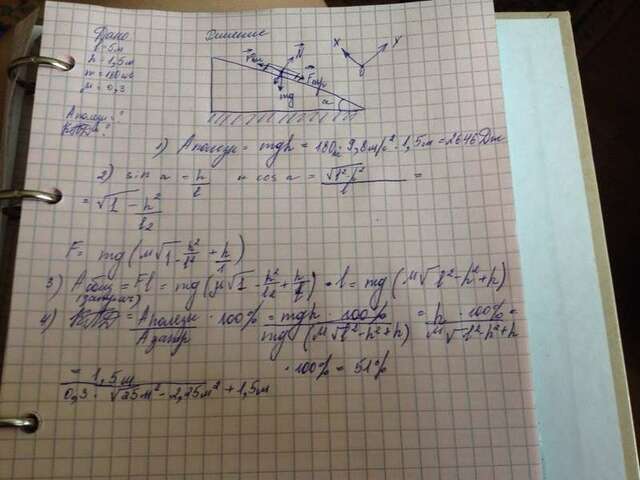 Дано
l = 5м
h = 1,5м
m = 180кг
μ = 0,3
A полезн = ?
КПД = ?
Решение
N
X
Y
Fтр
mg
α
1) A полезн = mgh = 180кг · 9,8м/с² · 1,5м = 2646Дж
2) sin α = h/l и cos α = √l²-h²/l =
= √1 - h²/l2
F = mg (μ√1 - h²/l² + h/l)
3) A общ = Fl = mg (μ√1 - h²/l2 + h/l) · l = mg (μ√l²-h²+h)
(затрач)
4) КПД = A полезн/A затр · 100% = mgh · 100%/mg (μ√l²-h²+h) = h · 100%/μ√l²-h²+h =
= 1,5м/0,3 · √25м² - 2,25м² + 1,5м · 100% = 51%